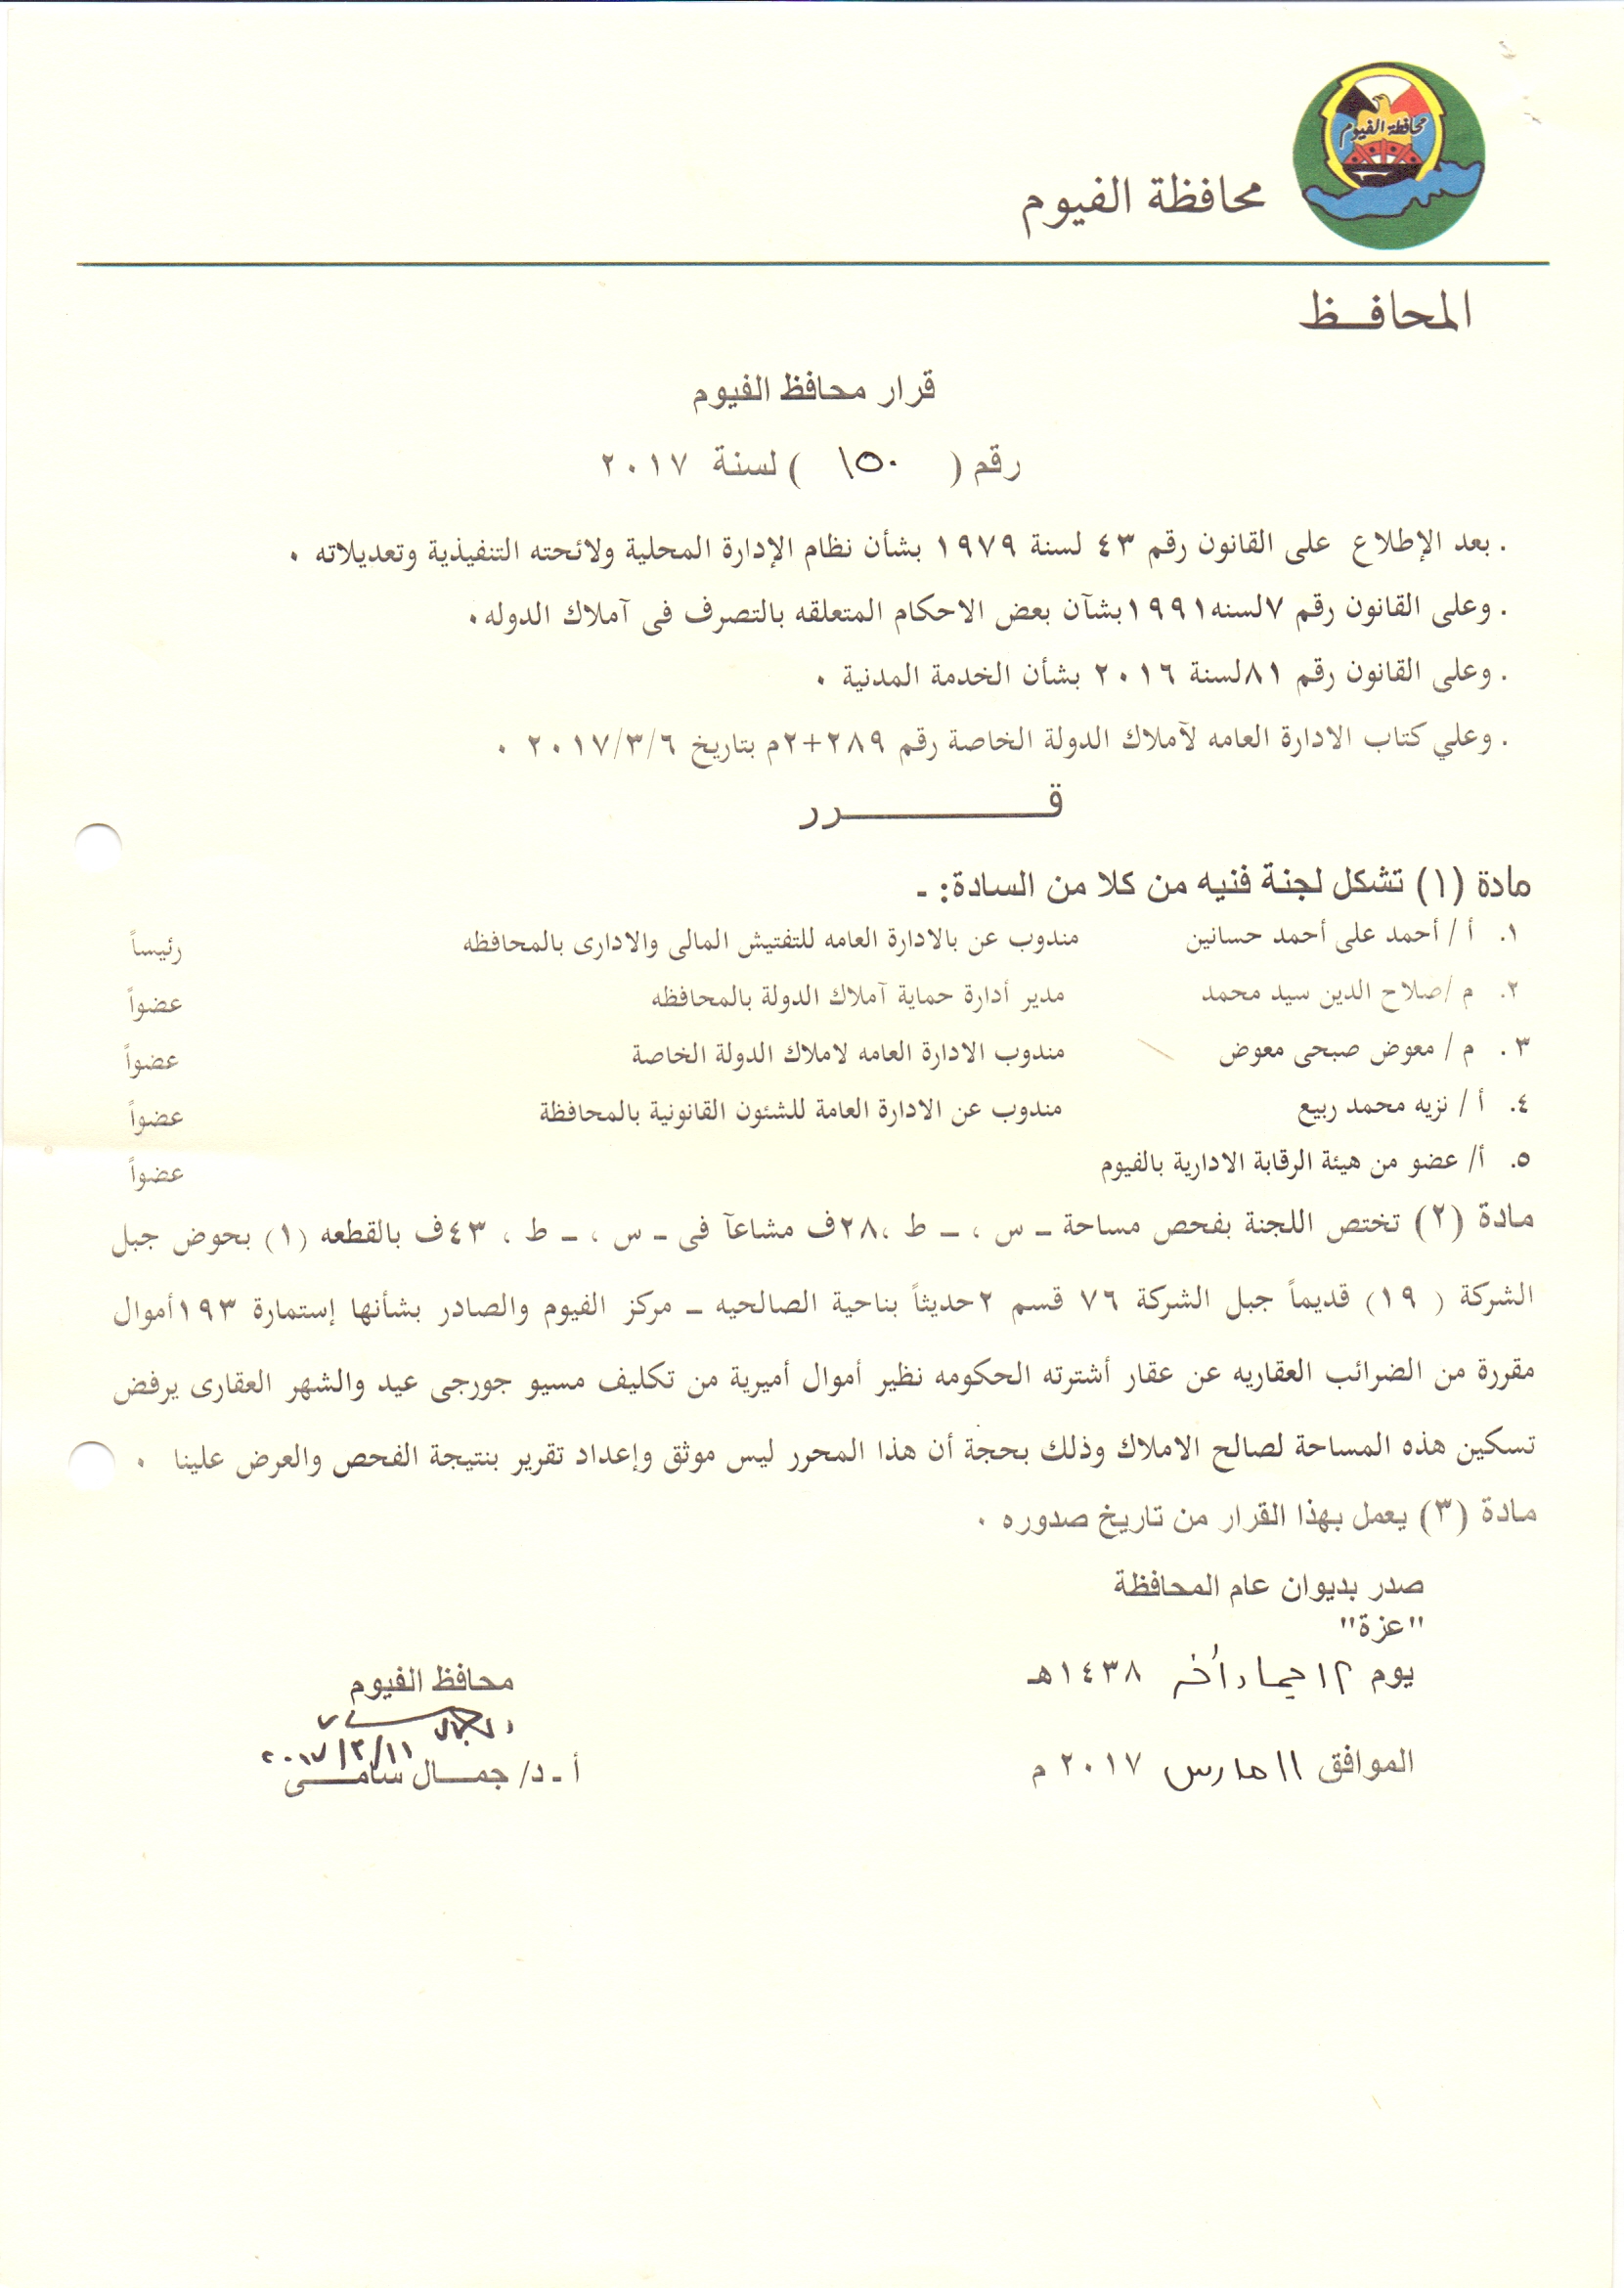 محافظة الفيوم
محافظة الفيوم
المحافــظ
قرار محافظ الفيوم
رقم ( ١٥٠ ) لسنة ٢٠١٧
. بعد الإطلاع على القانون رقم ٤٣ لسنة ١٩٧٩ بشأن نظام الإدارة المحلية ولائحته التنفيذية وتعديلاته .
. وعلى القانون رقم ٧لسنه١٩٩١بشآن بعض الاحكام المتعلقه بالتصرف فى آملاك الدوله.
. وعلى القانون رقم ٨١لسنة ٢٠١٦ بشأن الخدمة المدنية .
. وعلي كتاب الادارة العامه لآملاك الدولة الخاصة رقم ٢٨٩+٢م بتاريخ ٢٠١٧/٣/٦ .
قــــــــــرر
مادة (١) تشكل لجنة فنيه من كلا من السادة: ـ
١. أ / أحمد على أحمد حسانين مندوب عن بالادارة العامه للتفتيش المالى والادارى بالمحافظه رئيساً
٢. م /صلاح الدين سيد محمد مدير أدارة حماية آملاك الدولة بالمحافظه عضواً
٣. م / معوض صبحى معوض مندوب الادارة العامه لاملاك الدولة الخاصة عضواً
٤. أ / نزيه محمد ربيع مندوب عن الادارة العامة للشئون القانونية بالمحافظة عضواً
٥. أ/ عضو من هيئة الرقابة الادارية بالفيوم عضواً
مادة (٢) تختص اللجنة بفحص مساحة ـ س ، ـ ط ،٢٨ف مشاعآ فى ـ س ، ـ ط ، ٤٣ف بالقطعه (١) بحوض جبل
الشركة ( ١٩) قديماً جبل الشركة ٧٦ قسم ٢حديثاً بناحية الصالحيه ـ مركز الفيوم والصادر بشأنها إستمارة ١٩٣أموال
مقررة من الضرائب العقاريه عن عقار أشترته الحكومه نظير أموال أميرية من تكليف مسيو جورجى عيد والشهر العقارى يرفض
تسكين هذه المساحة لصالح الاملاك وذلك بحجة أن هذا المحرر ليس موثق وإعداد تقرير بنتيجة الفحص والعرض علينا .
مادة (٣) يعمل بهذا القرار من تاريخ صدوره .
صدر بديوان عام المحافظة
"عزة"
يوم ١٢ جماد آخر ١٤٣٨هـ
الموافق ١١ مارس ٢٠١٧ م
محافظ الفيوم
٢٠١٧/٣/١١
أ ـ د/ جمـــال سامـــى